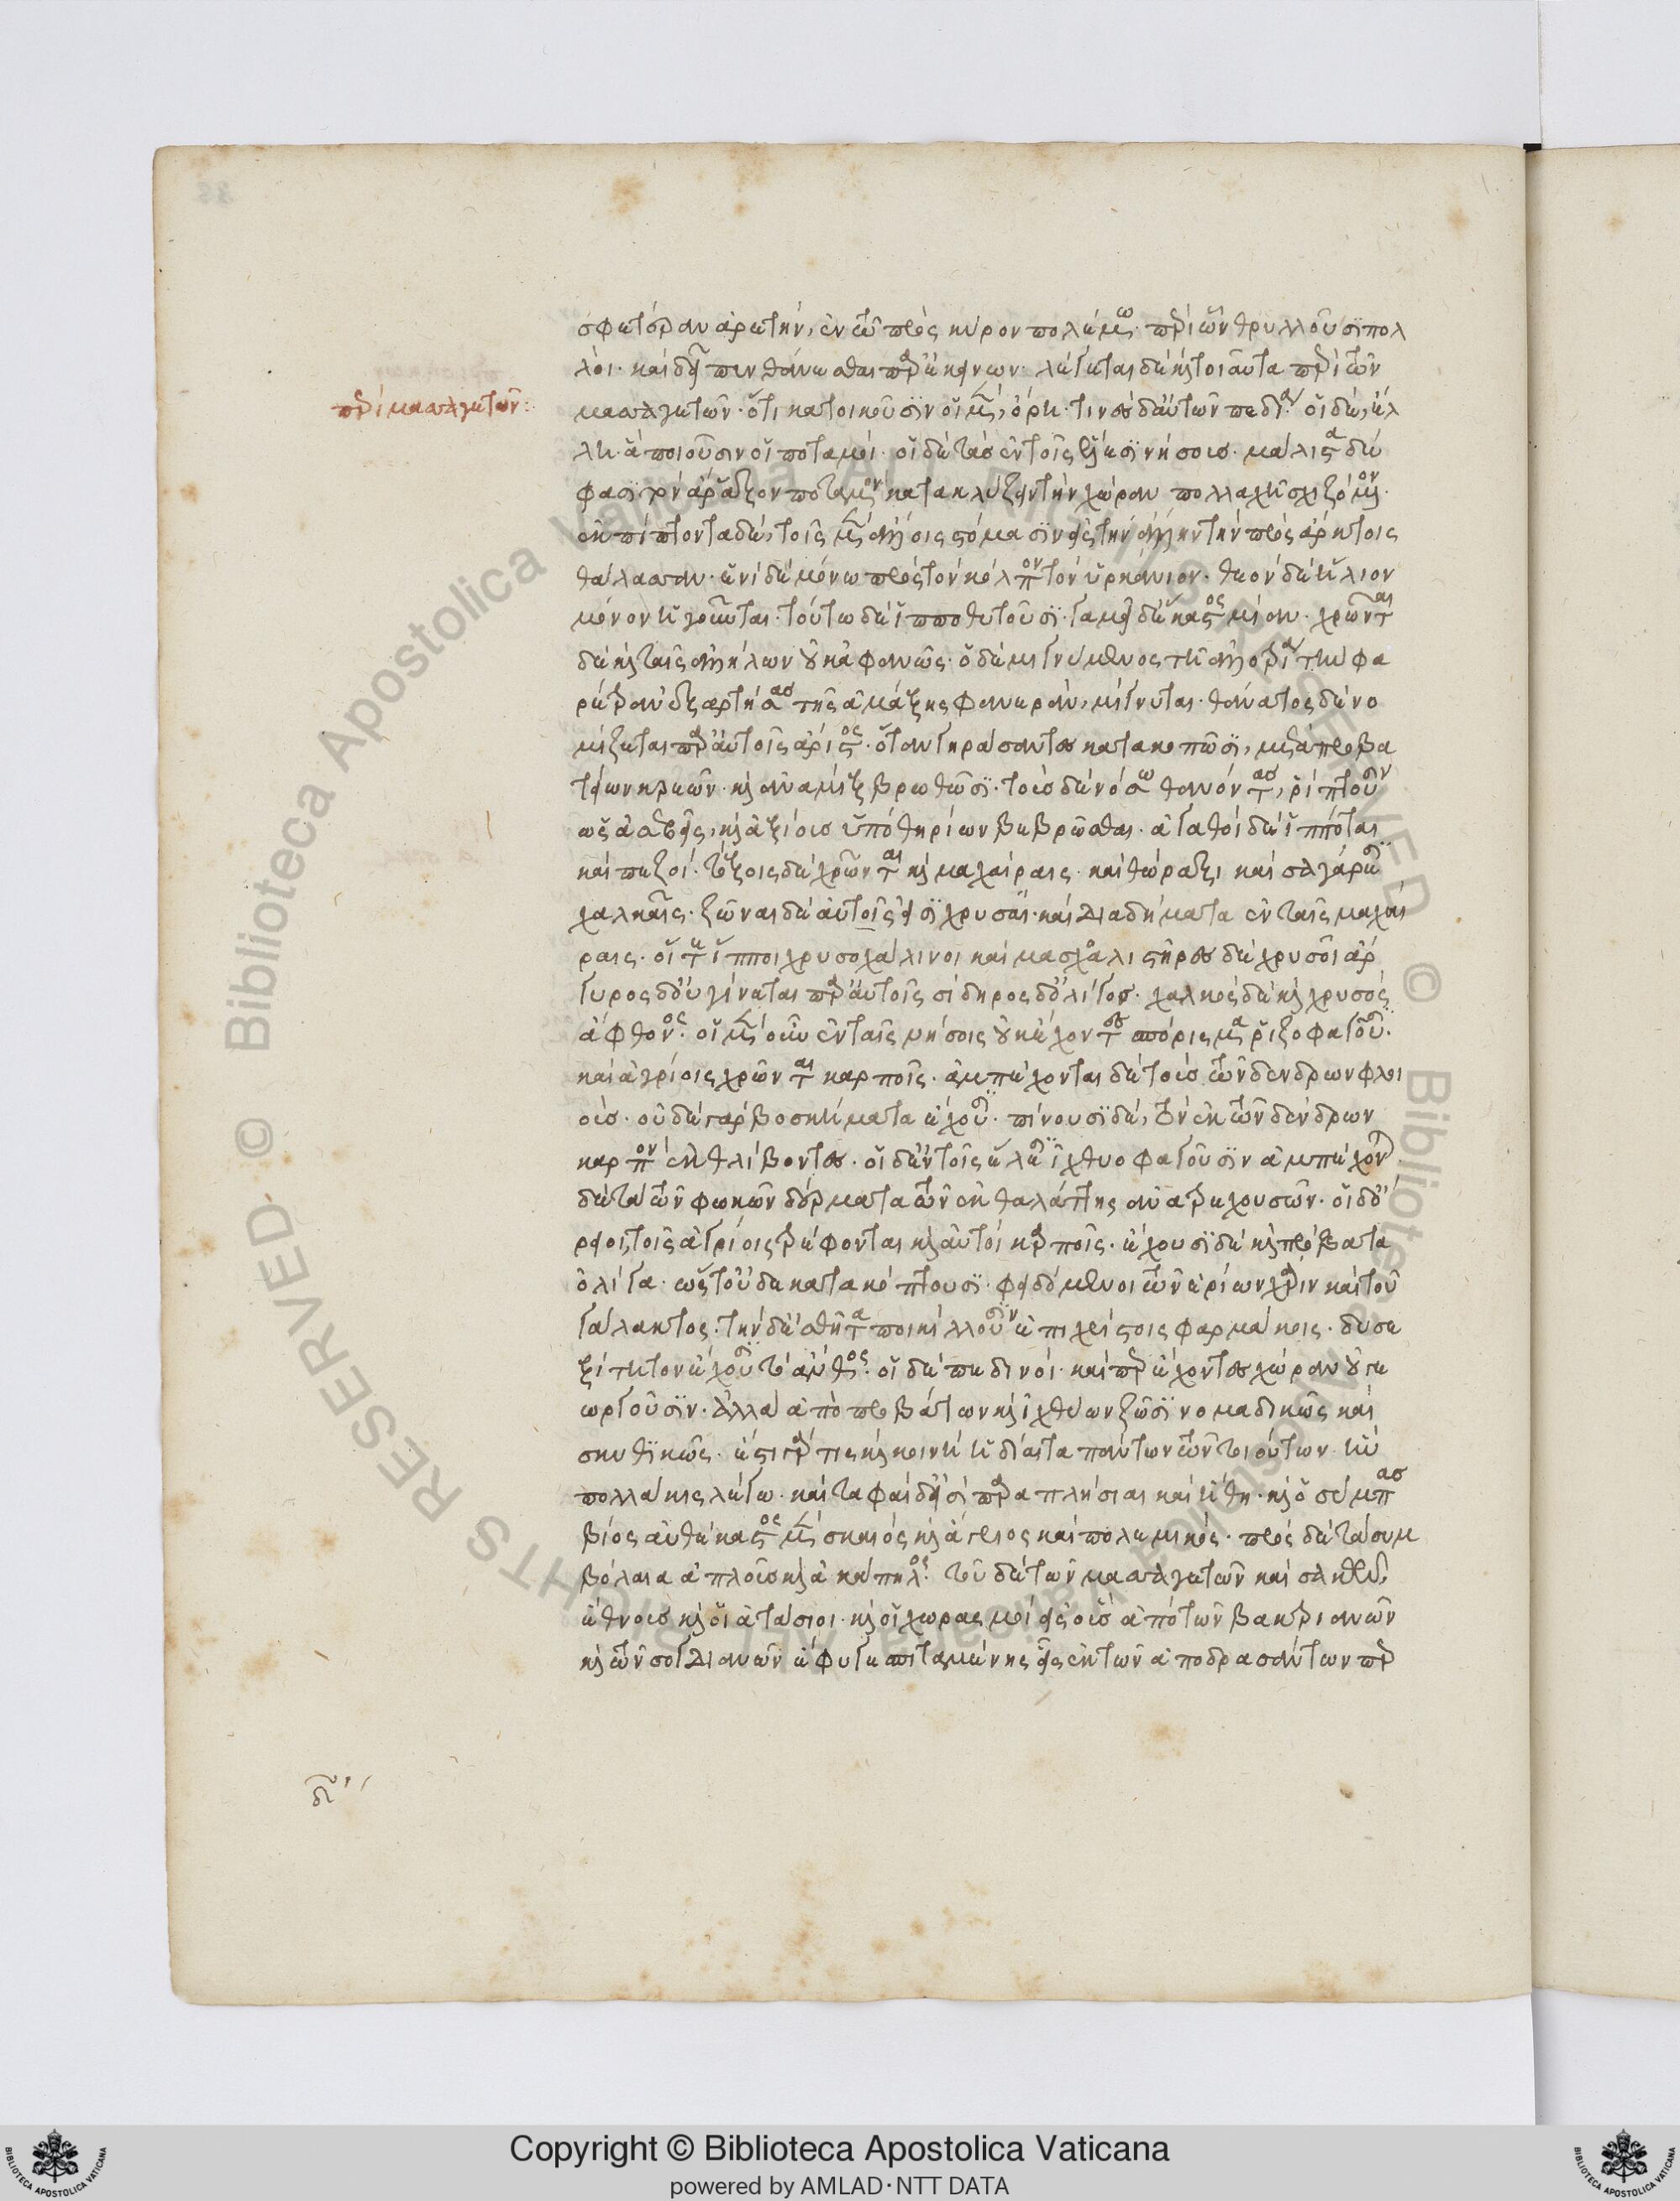 σφετέραν ἀρετὴν, ἐν τῶ πρὸς κύρον πολέμω. περὶ ὧν θρυλλοῦσι πολ
λοί. καὶ δεῖ πυνθάνεσθαι παρ' ἐκείνων. λέγεται δὲ καὶ τοιαῦτα περὶ τῶν
περὶ μασσαγετῶν:
μασσαγετῶν. ὅτι κατοικοῦσιν οἱ μὲν, ὄρη. τινὲς δ' αὐτῶν πεδία. οἱ δὲ, ἕλ
λη. ἃ ποιοῦσιν οἱ ποταμοί. οἱ δὲ τὰς ἐν τοῖς ἕλεσι νήσους. μάλιστα δέ
φασι τὸν ἀράξον ποταμὸν κατακλύζειν τὴν χώραν πολλαχῆ σχιζόμενον.
ἐκπίπτοντα δὲ, τοῖς μὲν ἄλλοις στόμασιν εἰς τὴν ἄλλην τὴν πρὸς ἄρκτοις
θάλασσαν. ἑνὶ δὲ μόνω πρὸς τὸν κόλπον τὸν ὑρκάνιον. θεὸν δὲ ἥλιον
μόνον ἡγοῦνται. τούτω δὲ ἱπποθυτοῦσι. γαμεῖ δ' ἕκαστος μίαν. χρῶνται
δὲ καὶ ταῖς ἀλλήλων οὐκ ἀφανῶς. ὁ δὲ μιγνύμενος τῆ ἀλλοτρία τὴν φα
ρέτραν ἐξαρτήσας τῆς ἁμάξης φανερὰν, μίγνυται. θάνατος δὲ νο
μίζεται παρ' αὐτοῖς ἄριστος. ὅταν γηράσαντες κατακοπῶσι, μετὰ προβα
τείων κρεῶν. καὶ ἀναμὶξ βρωθῶσι. τοὺς δὲ νόσω θανόντας, ῥίπτουσιν
ὡς ἀσεβεῖς, καὶ ἀξίους ὑπὸ θηρίων βεβρῶσθαι. ἀγαθοὶ δὲ ἱππόται
καὶ πεζοί. τόξοις δὲ χρῶνται καὶ μαχαίραις. καὶ θώραξι καὶ σαγάρεσι
χαλκαῖς. ζῶναι δὲ αὐτοῖς εἰσὶ χρυσαῖ. καὶ διαδήματα ἐν ταῖς μαχαί
ραις. οἵ τε ἵπποι χρυσοχάλινοι καὶ μασχαλιστῆρες δὲ χρυσοῖ ἄρ
γυρος δ' οὐ γίνεται παρ' αὐτοῖς σίδηρος δ' ὀλίγος. χαλκὸς δὲ καὶ χρυσὸς
ἄφθονος. οἱ μὲν οὖν ἐν ταῖς νήσοις οὐκ ἔχοντες σπόριμα ῥιζοφαγοῦσι.
καὶ ἀγρίοις χρῶνται καρποῖς. ἀμπέχονται δὲ τοὺς τῶν δένδρων φλοι
οὺς. οὐδὲ γὰρ βοσκήματα ἔχουσι. πίνουσι δὲ, τὸν ἐκ τῶν δένδρων
καρπὸν ἐκθλίβοντες. οἱ δ' ἐν τοῖς ἕλεσι ἰχθυοφαγοῦσιν ἀμπέχονται
δὲ τὰ τῶν φωκῶν δέρματα τῶν ἐκ θαλάττης ἀνατρεχουσῶν. οἱ δ' ὄ
ρειοι, τοῖς ἀγρίοις τρέφονται καὶ αὐτοὶ καρποῖς. ἔχουσι δὲ καὶ πρόβατα
ὀλίγα. ὥστ' οὐδὲ κατακόπτουσι. φειδόμενοι τῶν ἐρίων χάριν καὶ τοῦ
γάλακτος. τὴν δ' ἐσθῆτα ποικίλλουσιν ἐπιχρίστοις φαρμάκοις. δυσε
ξίτητον ἔχουσι τὸ ἄνθος. οἱ δὲ πεδινοὶ. καίπερ ἔχοντες χώραν οὐ γε
ωργοῦσιν. ἀλλὰ ἀπὸ προβάτων καὶ ἰχθύων ζῶσι νομαδικῶς καὶ
σκυθικῶς. ἔστι γάρ τις καὶ κοινὴ ἡ δίαιτα πάντων τῶν τοιούτων. ἣν
πολλάκις λέγω. καὶ ταφαὶ δ' εἰσὶ παραπλήσιαι καὶ ἤθη. καὶ ὁ σύμπας
βίος αὐθέκαστος μὲν σκαιὸς καὶ ἄγριος καὶ πολεμικός. πρὸς δὲ τὰ συμ
βόλαια ἁπλοῦς καὶ ἀκάπηλος. τοῦ δὲ τῶν μασσαγετῶν καὶ σακῶν
ἔθνους καὶ οἱ ἀτάσιοι. καὶ οἱ χωρασμοί εἰς οὓς ἀπὸ τῶν βακτριανῶν
καὶ τῶν σογδιανῶν ἔφυγε σπιταμένης εἷς ἐκ τῶν ἀποδρασάντων περ